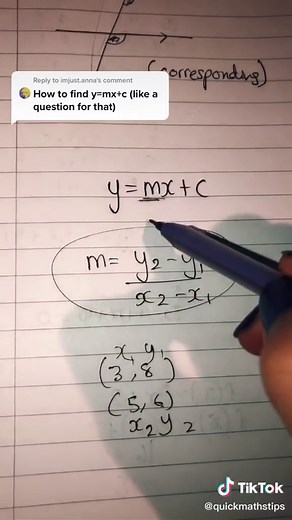 (corresponding)
Reply to imjust.anna's comment
How to find y=mx+c (like a
question for that)
y = mx + c
m = y2 - y1
x2 - x1
x1 y1
(3, 8)
(5, 6)
x2 y2
TikTok
@quickmathstips